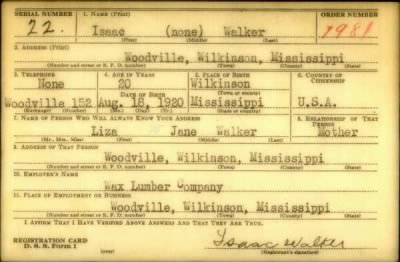 SERIAL NUMBER 1. NAME (Print) ORDER NUMBER
22. Isaac (none) Walker 1981
(First) (Middle) (Last)
2. ADDRESS (Print)
Woodville, Wilkinson, Mississippi
(Number and street or R. F. D. number) (Town) (County) (State)
3. TELEPHONE 4. AGE IN YEARS 5. PLACE OF BIRTH 6. COUNTRY OF CITIZENSHIP
None 20 Wilkinson
DATE OF BIRTH (Town or county)
Woodville 152 Aug. 18, 1920 Mississippi U.S.A.
(Exchange) (Number) (Mo.) (Day) (Yr.) (State or country)
7. NAME OF PERSON WHO WILL ALWAYS KNOW YOUR ADDRESS 8. RELATIONSHIP OF THAT PERSON
Liza Jane Walker Mother
(Mr., Mrs., Miss) (First) (Middle) (Last)
9. ADDRESS OF THAT PERSON
Woodville, Wilkinson, Mississippi
(Number and street or R. F. D. number) (Town) (County) (State)
10. EMPLOYER'S NAME
Wax Lumber Company
11. PLACE OF EMPLOYMENT OR BUSINESS
Woodville, Wilkinson, Mississippi
(Number and street or R. F. D. number) (Town) (County) (State)
I AFFIRM THAT I HAVE VERIFIED ABOVE ANSWERS AND THAT THEY ARE TRUE.
REGISTRATION CARD Isaac Walker
D. S. S. Form 1 (Registrant's signature)